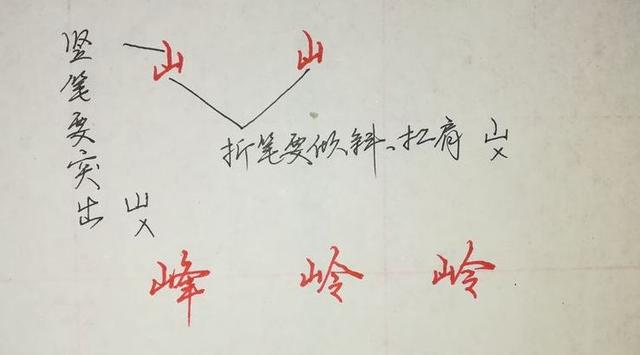 竖笔要突出
山 山
折笔要倾斜、扛肩 山×
山×
峰 岭 岭